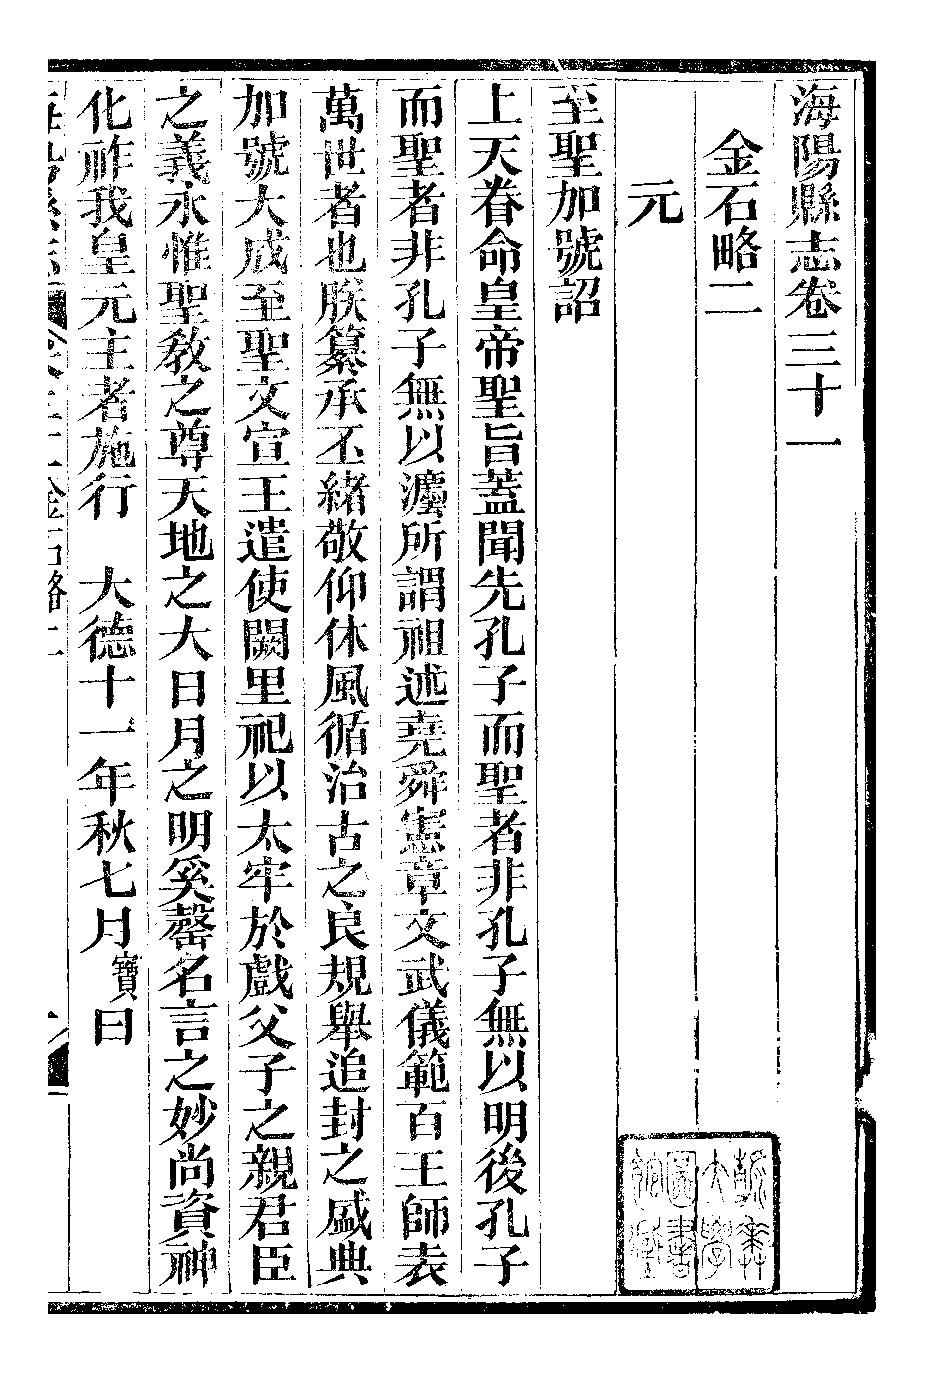 海陽縣志卷三十一
金石略二
元
至聖加號詔
上天眷命皇帝聖旨蓋聞先孔子而聖者非孔子無以明後孔子
而聖者非孔子無以灋所謂祖述堯舜憲章文武儀範百王師表
萬世者也朕纂承丕緒敬仰休風循治古之良規舉追封之盛典
加號大成至聖文宣王遣使闕里祀以太牢於戲父子之親君臣
之義永惟聖教之尊天地之大日月之明奚罄名言之妙尚資神
化祚我皇元主者施行　大德十一年秋七月寶曰